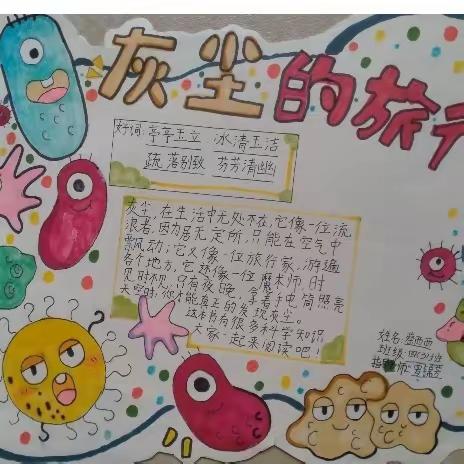 灰尘的旅行
好词:亭亭玉立 冰清玉洁
疏落别致 芬芳清幽
灰尘,在生活中无处不在,它像一位流
浪者,因为居无定所,只能在空气中
飘动;它又像一位旅行家,游遍
各个地方,它还像一位魔术师,时
见时現,只有夜晚,拿着手电筒照亮
天空时,你才能真正的发现灰尘。
这本书有很多科学知识
大家一起来阅读吧!
姓名:
班级:
指导师: